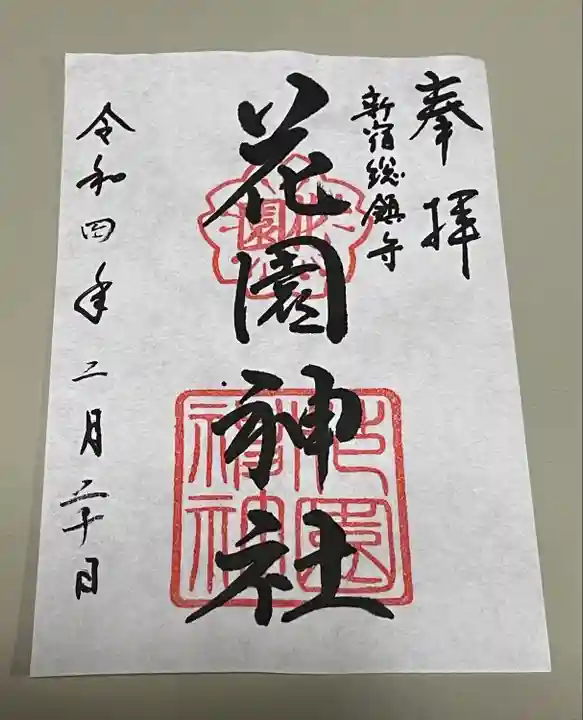 奉拝
新宿総鎮守
花園神社
令和四年二月二十日